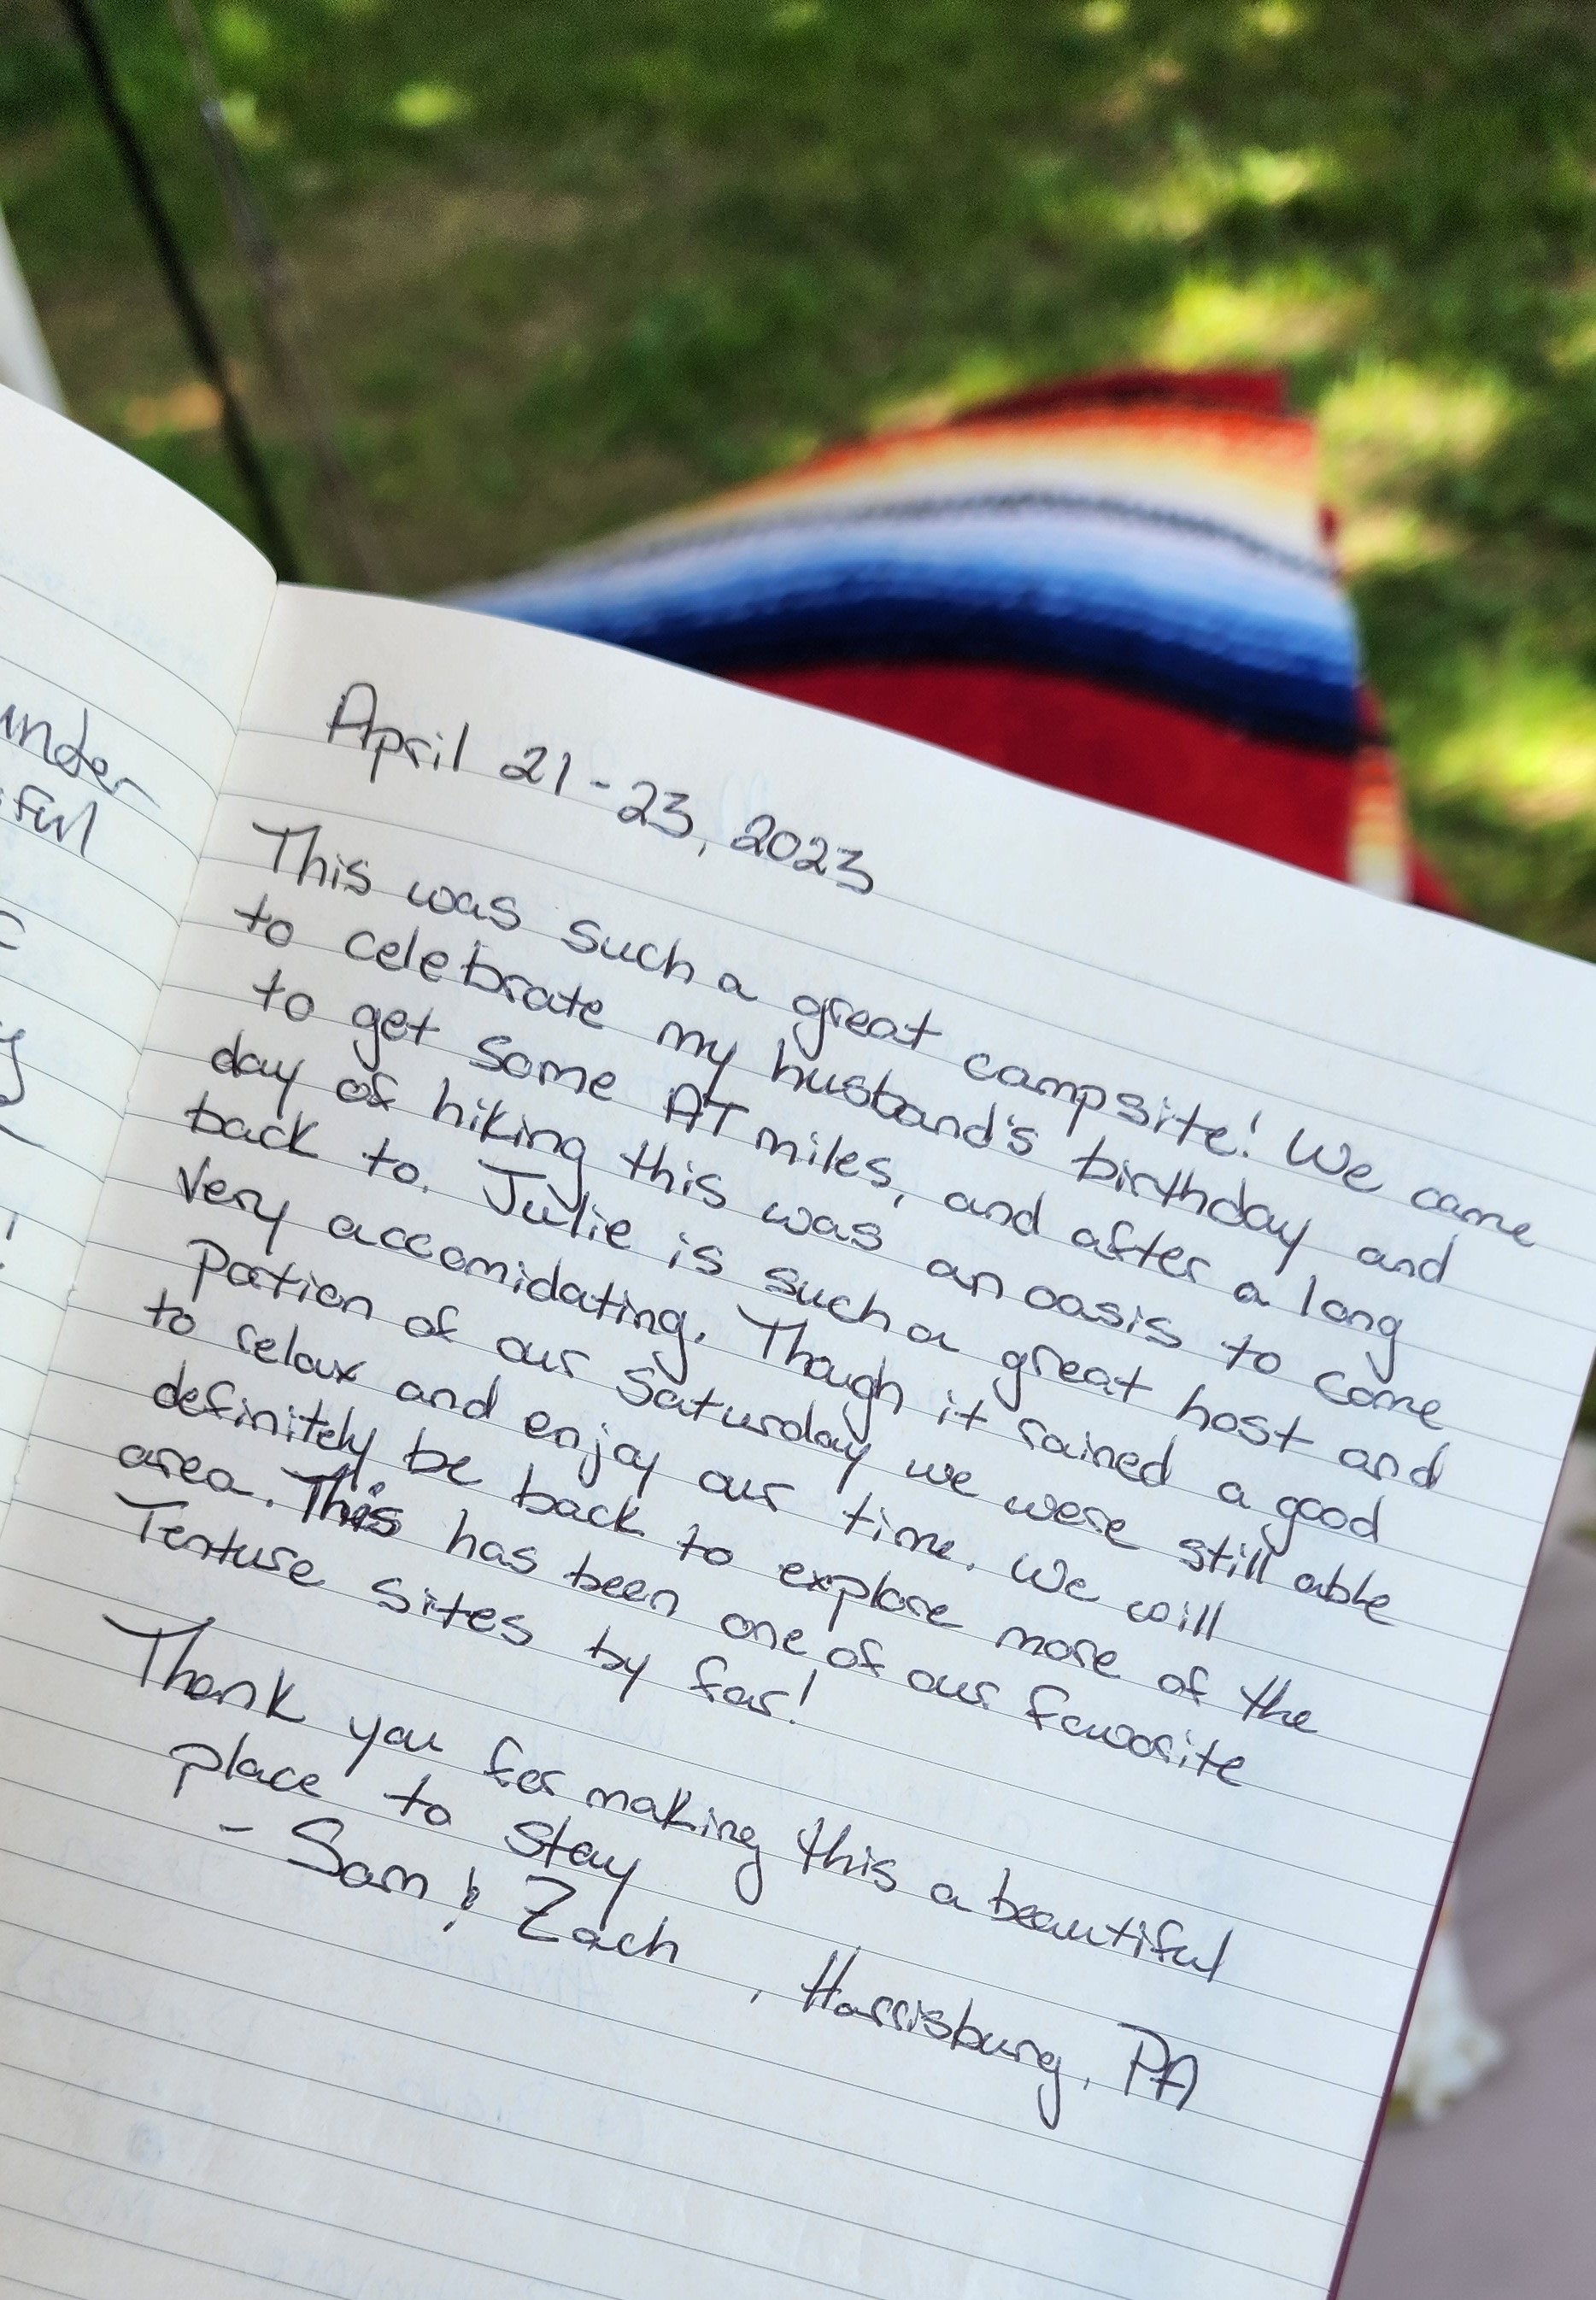 under
April 21-23, 2023
This was such a great campsite! We came
to celebrate my husband's birthday and
to get some AT miles, and after a long
day of hiking this was an oasis to come
back to. Julie is such a great host and
very accomidating. Though it rained a good
portion of our Saturday we were still able
to relax and enjoy our time. We will
definitely be back to explore more of the
area. This has been one of our favorite
Tenture sites by far!
Thank you for making this a beautiful
place to stay
- Sam & Zach, Harrisburg, PA